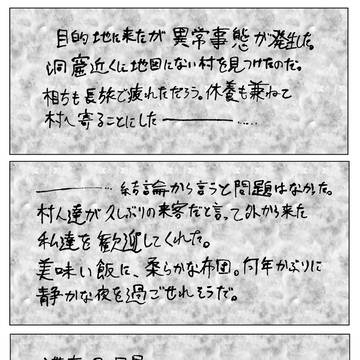 目的地に来たが異常事態が発生した。
洞窟近くに地図にない村を見つけたのだ。
相方も長旅で疲れただろう。休養も兼ねて
村へ寄ることにした―――……
―――…結論から言うと問題はなかった。
村人達が久しぶりの来客だと言って外から来た
私達を歓迎してくれた。
美味い飯に、柔らかな布団。何年かぶりに
静かな夜を過ごせそうだ。